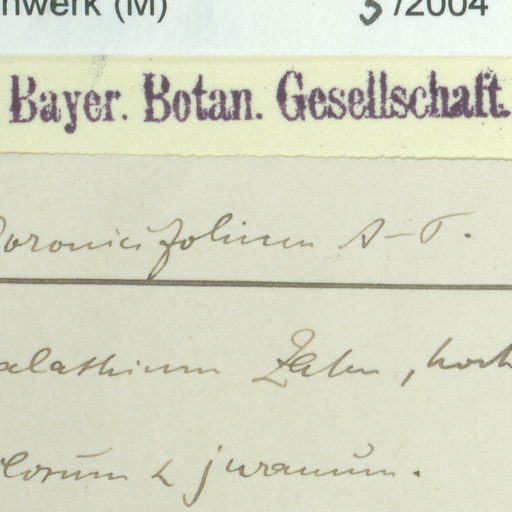 nwerk (M) 3/2004
Bayer. Botan. Gesellschaft.
doronicifolium A-T.
alathium Zahn, hoch
losum < juranum.